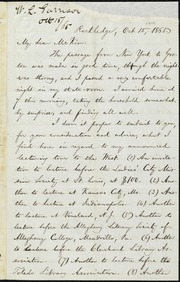 W. L. Garrison
Oct 15/65
Rockledge, Oct. 15, 1865.
My dear McKim:
The passage from New York to Groton
was made in good time, though the night
was strong, and I passed a very comfortable
night in my state-room. I arrived home at
of this morning, taking the household somewhat
by surprise, and finding all well.
I have it proper to submit to
you for consideration and advice, what I
find here in regard to my announced
lecturing tour to the West. (1) An invitation
to lecture before the Ladies' City Mission
Society of St. Louis, at $100. (2) Another
to lecture at Kansas City, Mo. (3) Another
to lecture at Indianapolis. (4) Another to
lecture at Vineland, N. J. (5) Another to
lecture before the Allegheny Literary Society of
Alleghany College, Meadville, Pa. (6) Another
to lecture before the Cleveland Library Association.
(7) Another to lecture before the
Toledo Library Association. (8) Another